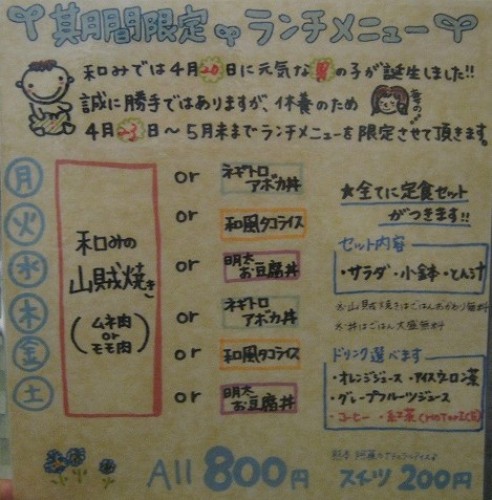 期間限定 ランチメニュー
和みでは4月20日に元気な男の子が誕生しました!!
誠に勝手ではありますが、休養のため
4月23日〜5月末までランチメニューを限定させて頂きます。
月 火 水 木 金 土
和みの
山賊焼き
(ムネ肉
or
モモ肉)
or ネギトロ
アボカ丼
or 和風タコライス
or 明太
お豆腐丼
or ネギトロ
アボカ丼
or 和風タコライス
or 明太
お豆腐丼
★全てに定食セット
がつきます!!
セット内容
・サラダ ・小鉢 ・とん汁
※山賊焼きはごはんおかわり無料
※丼はごはん大盛無料
ドリンク選べます
・オレンジジュース ・アイスウーロン茶
・グレープフルーツジュース
・コーヒー ・紅茶(HOT or ICE)
All 800円
スイーツ 200円